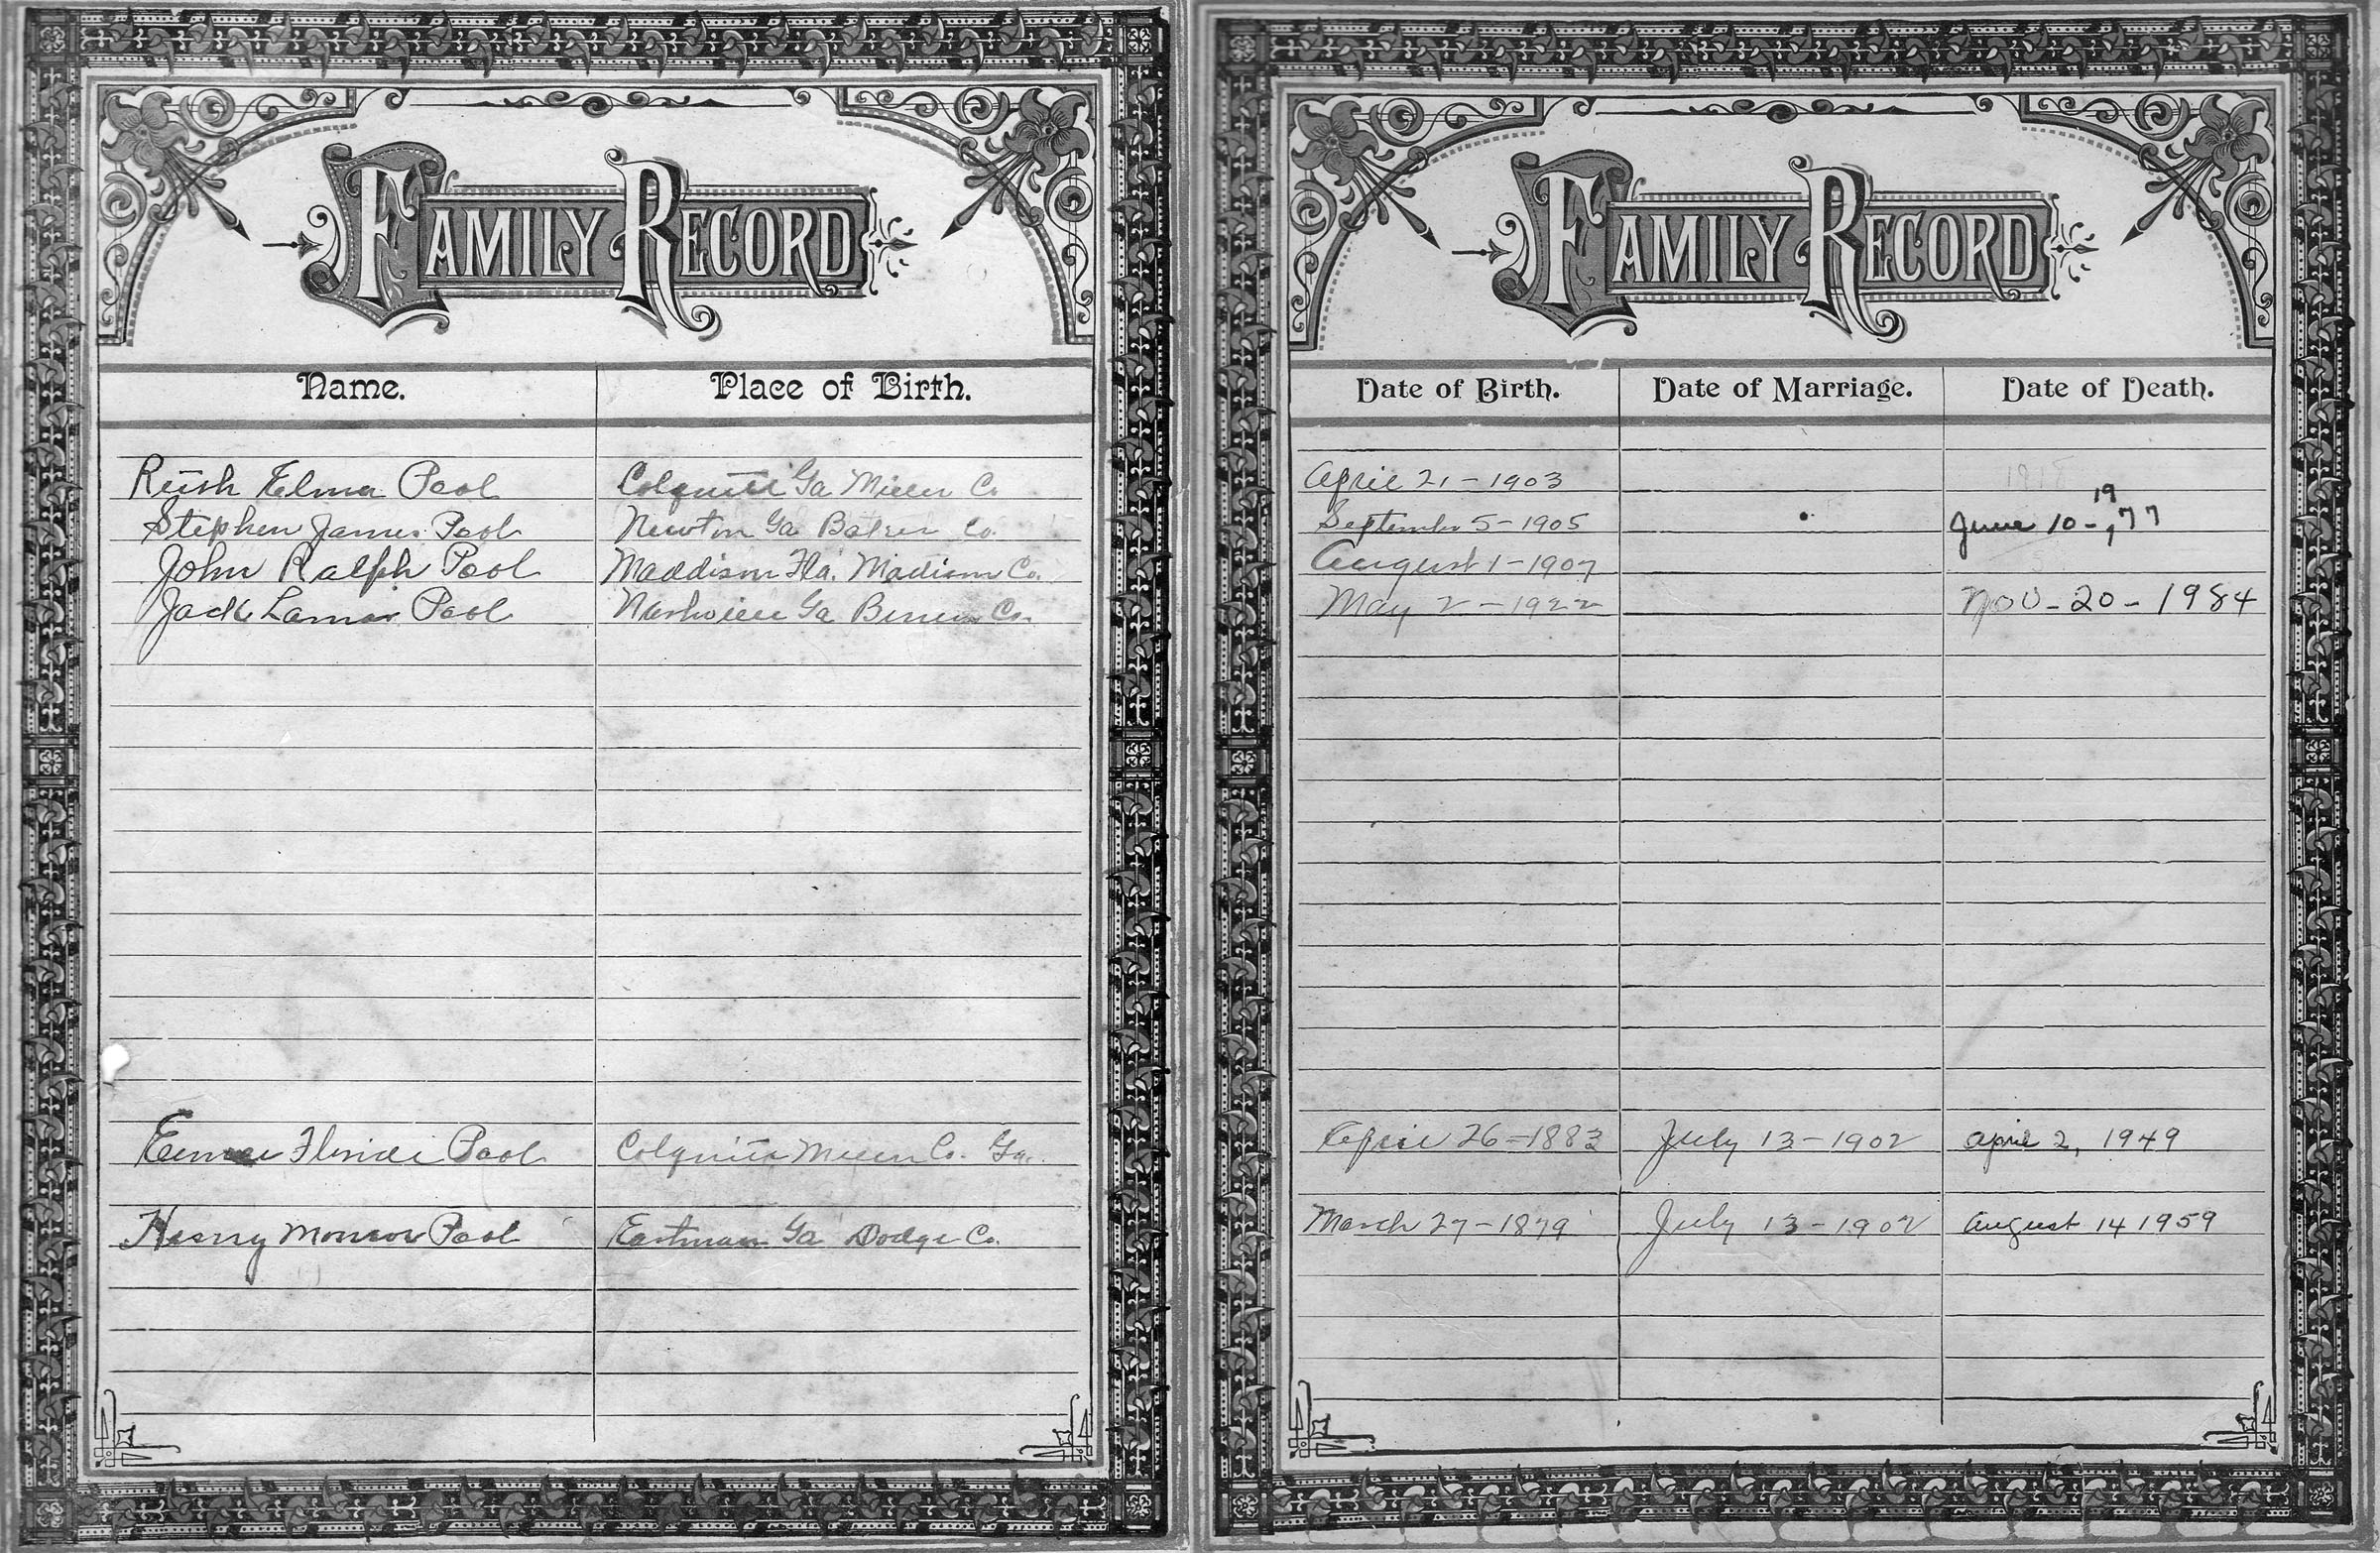 FAMILY RECORD
Name. Place of Birth.
Elma Pool Colquitt Ga Miller Co
Stephen James Pool Newton Ga Baker Co.
John Ralph Pool Maddison Fla. Madison Co.
Jack Lamar Pool Nashville Ga Co.
Pool Colquitt Miller Co. Ga.
Henry Monroe Pool Eastman Ga Dodge Co.
FAMILY RECORD
Date of Birth. Date of Marriage. Date of Death.
April 21 - 1903
September 5 - 1905 June 10 - 19 77
August 1 - 1907
May 2 - 1922 Nov - 20 - 1984
April 26 - 1883 July 13 - 1902 April 2, 1949
March 27 - 1879 July 13 - 1902 August 14 1959